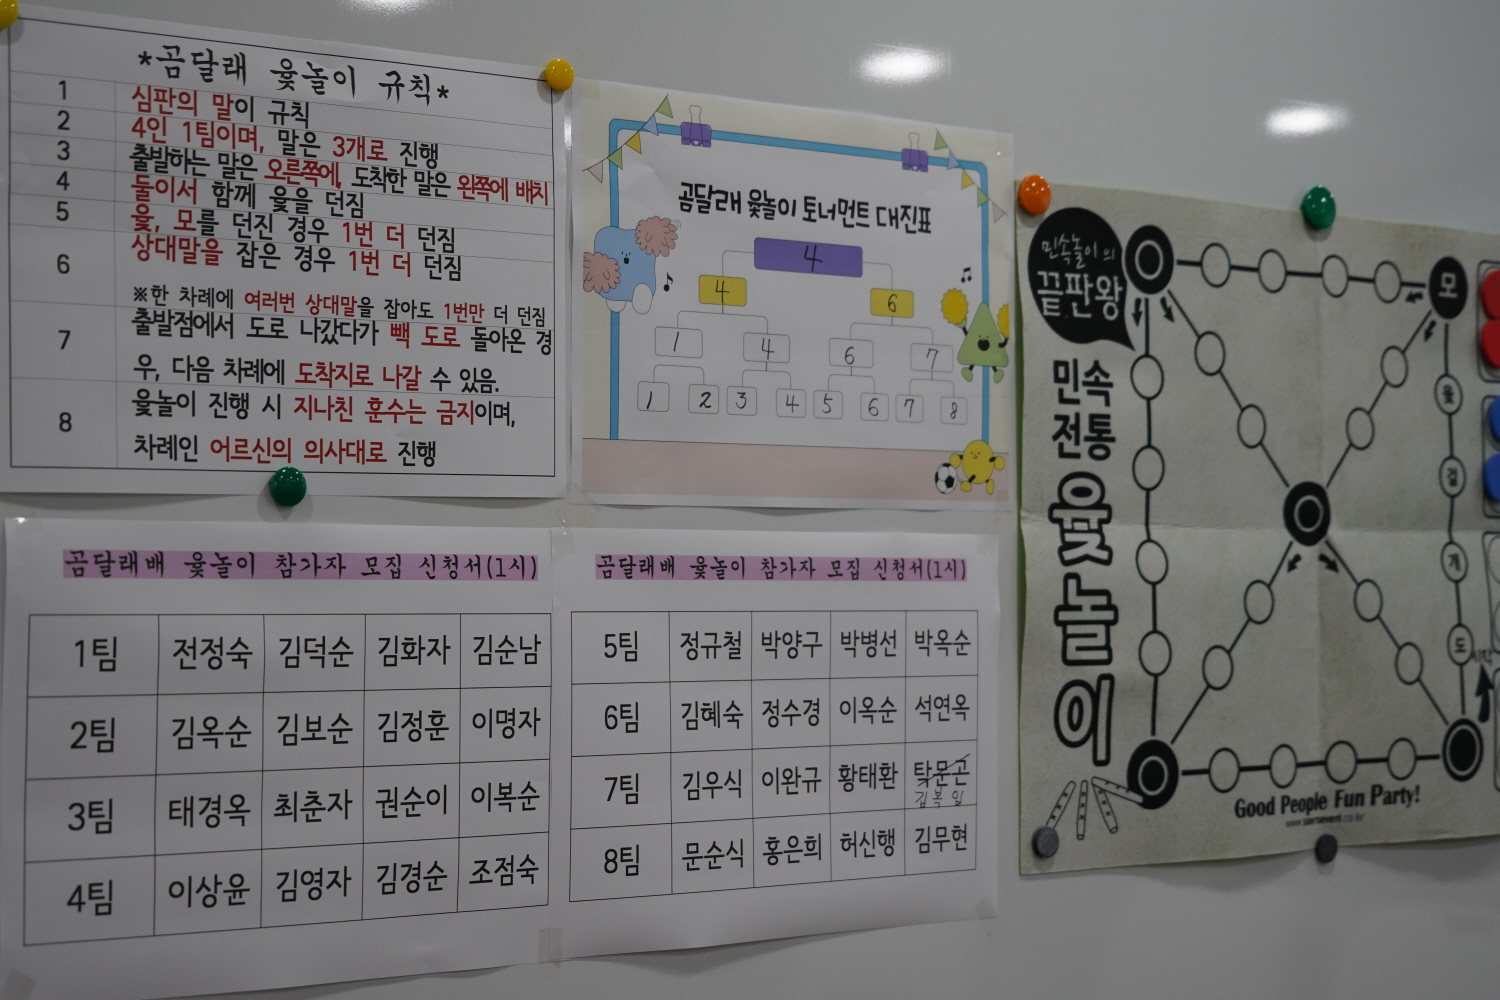 *곰달래 윷놀이 규칙*
1 심판의 말이 규칙
2 4인 1팀이며, 말은 3개로 진행
3 출발하는 말은 오른쪽에, 도착한 말은 왼쪽에 배치
4 둘이서 함께 윷을 던짐
5 윷, 모를 던진 경우 1번 더 던짐
6 상대말을 잡은 경우 1번 더 던짐
※한 차례에 여러번 상대말을 잡아도 1번만 더 던짐
7 출발점에서 도로 나갔다가 빽 도로 돌아온 경
우, 다음 차례에 도착지로 나갈 수 있음.
8 윷놀이 진행 시 지나친 훈수는 금지이며,
차례인 어르신의 의사대로 진행
곰달래 윷놀이 토너먼트 대진표
4
4 6
1 4 6 7
1 2 3 4 5 6 7 8
곰달래배 윷놀이 참가자 모집 신청서(1시)
1팀 전정숙 김덕순 김화자 김순남
2팀 김옥순 김보순 김정훈 이명자
3팀 태경옥 최춘자 권순이 이복순
4팀 이상윤 김영자 김경순 조점숙
곰달래배 윷놀이 참가자 모집 신청서(1시)
5팀 정규철 박양구 박병선 박옥순
6팀 김혜숙 정수경 이옥순 석연옥
7팀 김우식 이완규 황태환 탁문곤
8팀 문순식 홍은희 허신행 김무현
민속놀이의
끝판왕
민속
전통
윷놀이
모
윷
걸
개
도
시작
Good People Fun Party!